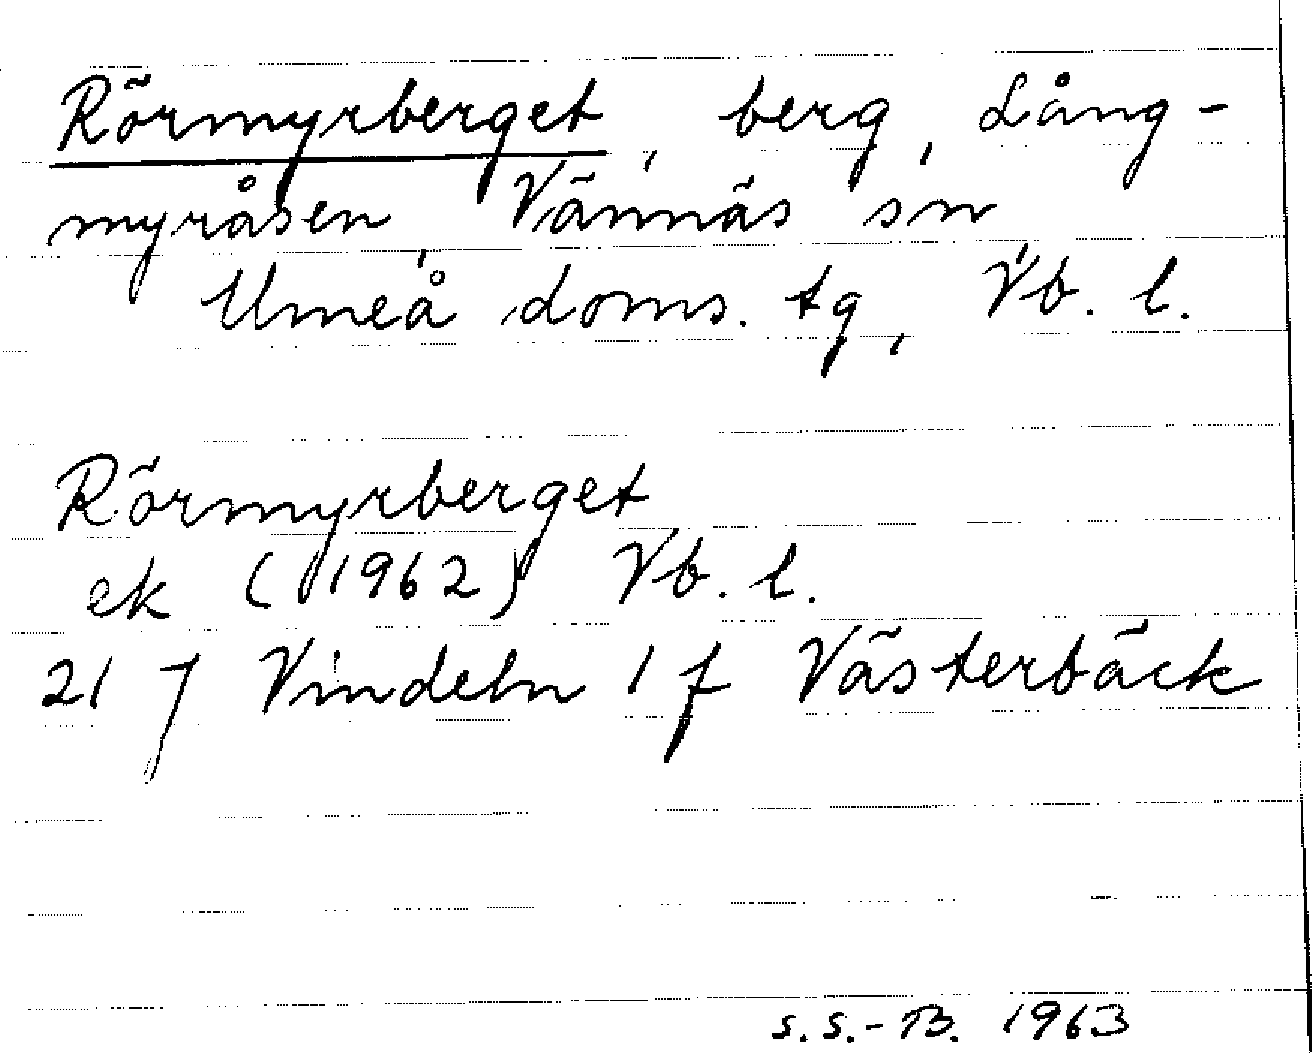 Rörmyrberget, berg, Lång-
myråsen, Vännäs sn,
Umeå doms. tg, Vb. l.
Rörmyrberget
ek (1962) Vb. l.
21 J Vindeln 1 f Västerbäck
S.S.-B. 1963